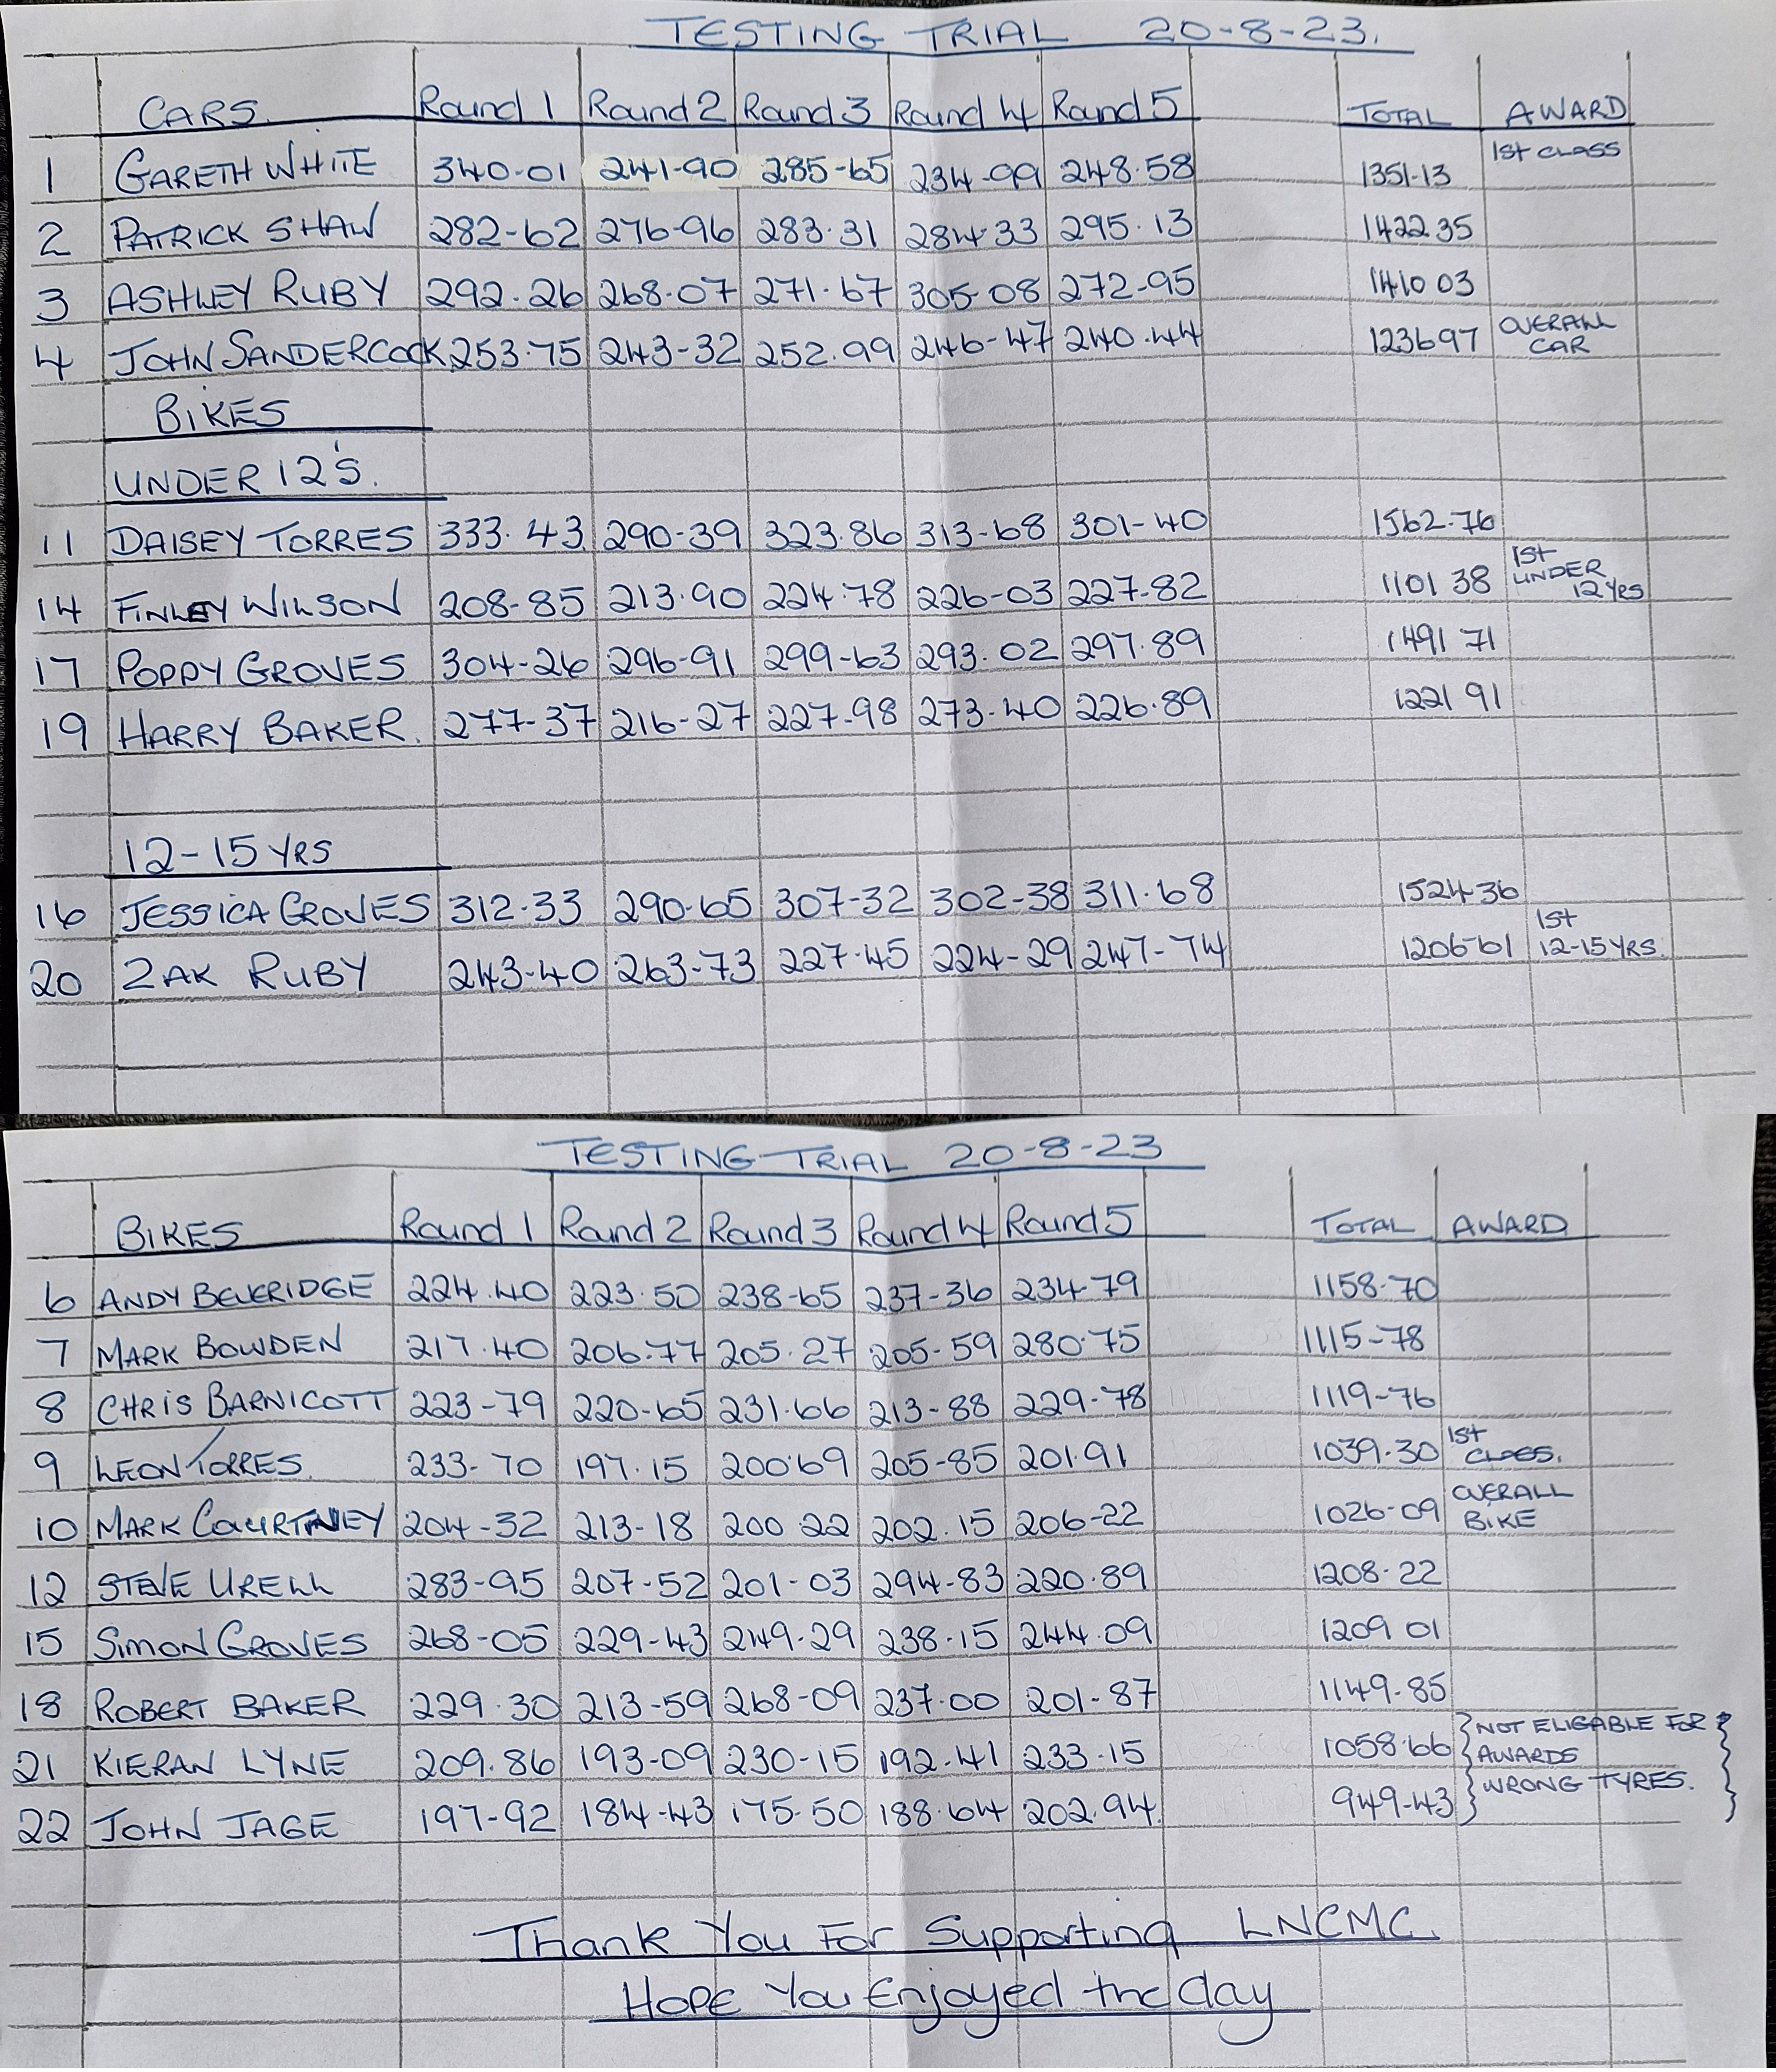 TESTING TRIAL 20-8-23.
CARS Round 1 Round 2 Round 3 Round 4 Round 5 TOTAL AWARD
1 GARETH WHITE 340-01 241-90 285-65 234-99 248.58 1351-13 1st CLASS
2 PATRICK SHAW 282-62 276-96 283.31 284.33 295.13 1422 35
3 ASHLEY RUBY 292.26 268.07 271.67 305-08 272-95 1410 03
4 JOHN SANDERCOCK 253.75 243-32 252.99 246-47 240.44 1236 97 OVERALL CAR
BIKES
UNDER 12'S.
11 DAISEY TORRES 333.43 290-39 323.86 313-68 301-40 1562.76
14 FINLEY WILSON 208-85 213.90 224.78 226-03 227-82 1101 38 1st UNDER 12 YRS
17 POPPY GROVES 304-26 296-91 299-63 293.02 297.89 1491 71
19 HARRY BAKER. 277-37 216-27 227-98 273-40 226.89 1221 91
12-15 YRS
16 JESSICA GROVES 312.33 290.65 307-32 302-38 311.68 1524-36
20 ZAK RUBY 243-40 263-73 227.45 224-29 247-74 1206-61 1st 12-15 YRS.
TESTING TRIAL 20-8-23
BIKES Round 1 Round 2 Round 3 Round 4 Round 5 TOTAL AWARD
6 ANDY BEVERIDGE 224.40 223.50 238-65 237-36 234.79 1158.70
7 MARK BOWDEN 217.40 206.77 205.27 205-59 280.75 1115-78
8 CHRIS BARNICOTT 223-79 220-65 231.66 213-88 229-78 1119-76
9 LEON TORRES. 233-70 197.15 200.69 205-85 201.91 1039.30 1st CLASS.
10 MARK COURTNEY 204-32 213-18 200 22 202.15 206-22 1026-09 OVERALL BIKE
12 STEVE URELL 283-95 207-52 201-03 294-83 220.89 1208-22
15 SIMON GROVES 268-05 229-43 249-29 238.15 244.09 1209 01
18 ROBERT BAKER 229.30 213-59 268-09 237.00 201-87 1149-85
21 KIERAN LYNE 209.86 193-09 230-15 192.41 233.15 1058.66 NOT ELIGABLE FOR AWARDS
22 JOHN JAGE 197-92 184-43 175-50 188.64 202.94. 949-43 WRONG TYRES.
Thank You For Supporting LNCMC.
HOPE You Enjoyed the day